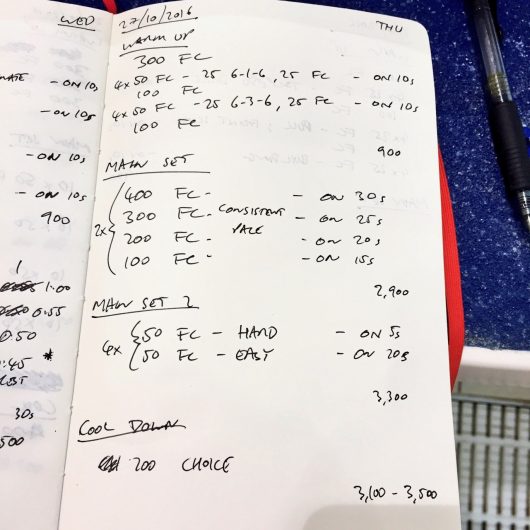 WED
- ON 10s
- ON 10s
- ON 10s
- ON 10s
900
1
1.00
0.55
0.50
0.45 *
30s
500
27/10/2016
THU
WARM UP
300 FC
4x50 FC - 25 6-1-6, 25 FC - ON 10s
100 FC
4x50 FC - 25 6-3-6, 25 FC - ON 10s
100 FC
900
MAIN SET
2x
400 FC - - ON 30s
300 FC - CONSISTENT - ON 25s
200 FC - PACE - ON 20s
100 FC - - ON 15s
2,900
MAIN SET 2
4x
50 FC - HARD - ON 5s
50 FC - EASY - ON 20s
3,300
COOL DOWN
200 CHOICE
3,100 - 3,500